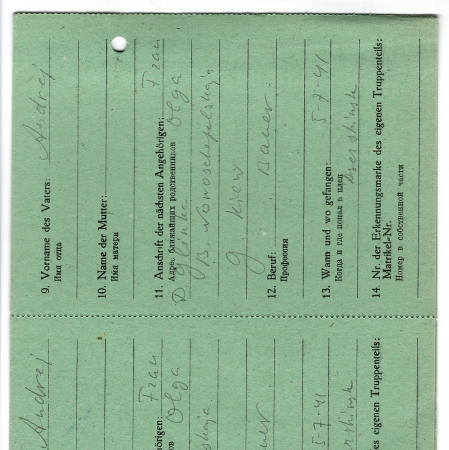 9. Vorname des Vaters: Andrej
Имя отца
10. Name der Mutter:
Имя матери
11. Anschrift der nächsten Angehörigen: Frau
Адрес ближайших родственников Olga
D. Glinka
B. Nowoschepelskaja
g Kiew
12. Beruf: Bauer
Профессия
13. Wann und wo gefangen: 5-7-41
Когда и где попал в плен
14. Nr. der Erkennungsmarke des eigenen Truppenteils:
Matrikel-Nr.
Номер в собственной части
Andrej
hörigen: Frau
ов Olga
skaja
auer
5-7-41
es eigenen Truppenteils: